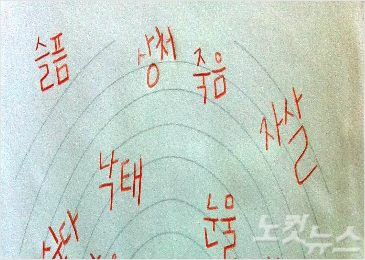 슬픔
상처
죽음
자살
낙태
눈물
싫다
노컷뉴스